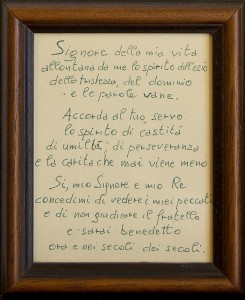 Signore della mia vita
allontana da me lo spirito dell'ozio
della tristezza, del dominio
e le parole vane.
Accorda al tuo servo
lo spirito di castità
di umiltà, di perseveranza
e la carità che mai viene meno
Sì, mio Signore e mio Re
concedimi di vedere i miei peccati
e di non giudicare il fratello
e sarai benedetto
ora e nei secoli dei secoli.